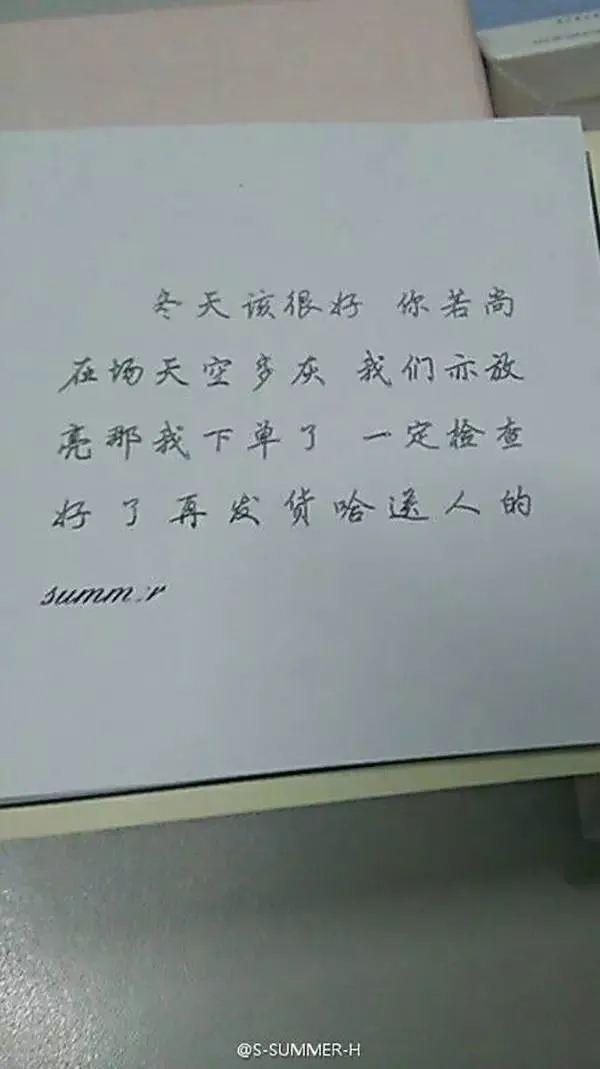 冬天该很好 你若尚
在场天空多灰 我们亦放
亮那我下单了 一定检查
好了再发货哈送人的
summer
@S-SUMMER-H